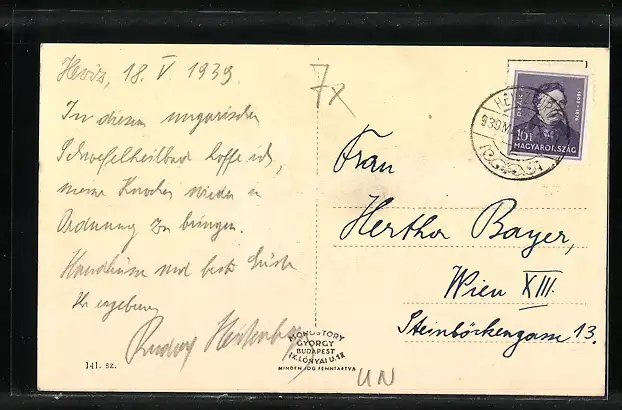 Heviz, 18. V. 1939.
In diesem ungarischen
Schwefelheilbad hoffe ich,
meine Knochen wieder in
Ordnung zu bringen.
Handküsse und beste Grüsse
Ihr ergebener
Rudolf
7x
DEÁK F.
1803-1876
10f
MAGYARORSZÁG
Frau
Hertha Bayer,
Wien XIII.
Steinböckengasse 13.
MONOSTORY
GYÖRGY
BUDAPEST
IX. LÓNYAI U. 18
MINDEN JOG FENNTARTVA
141. sz.
UN